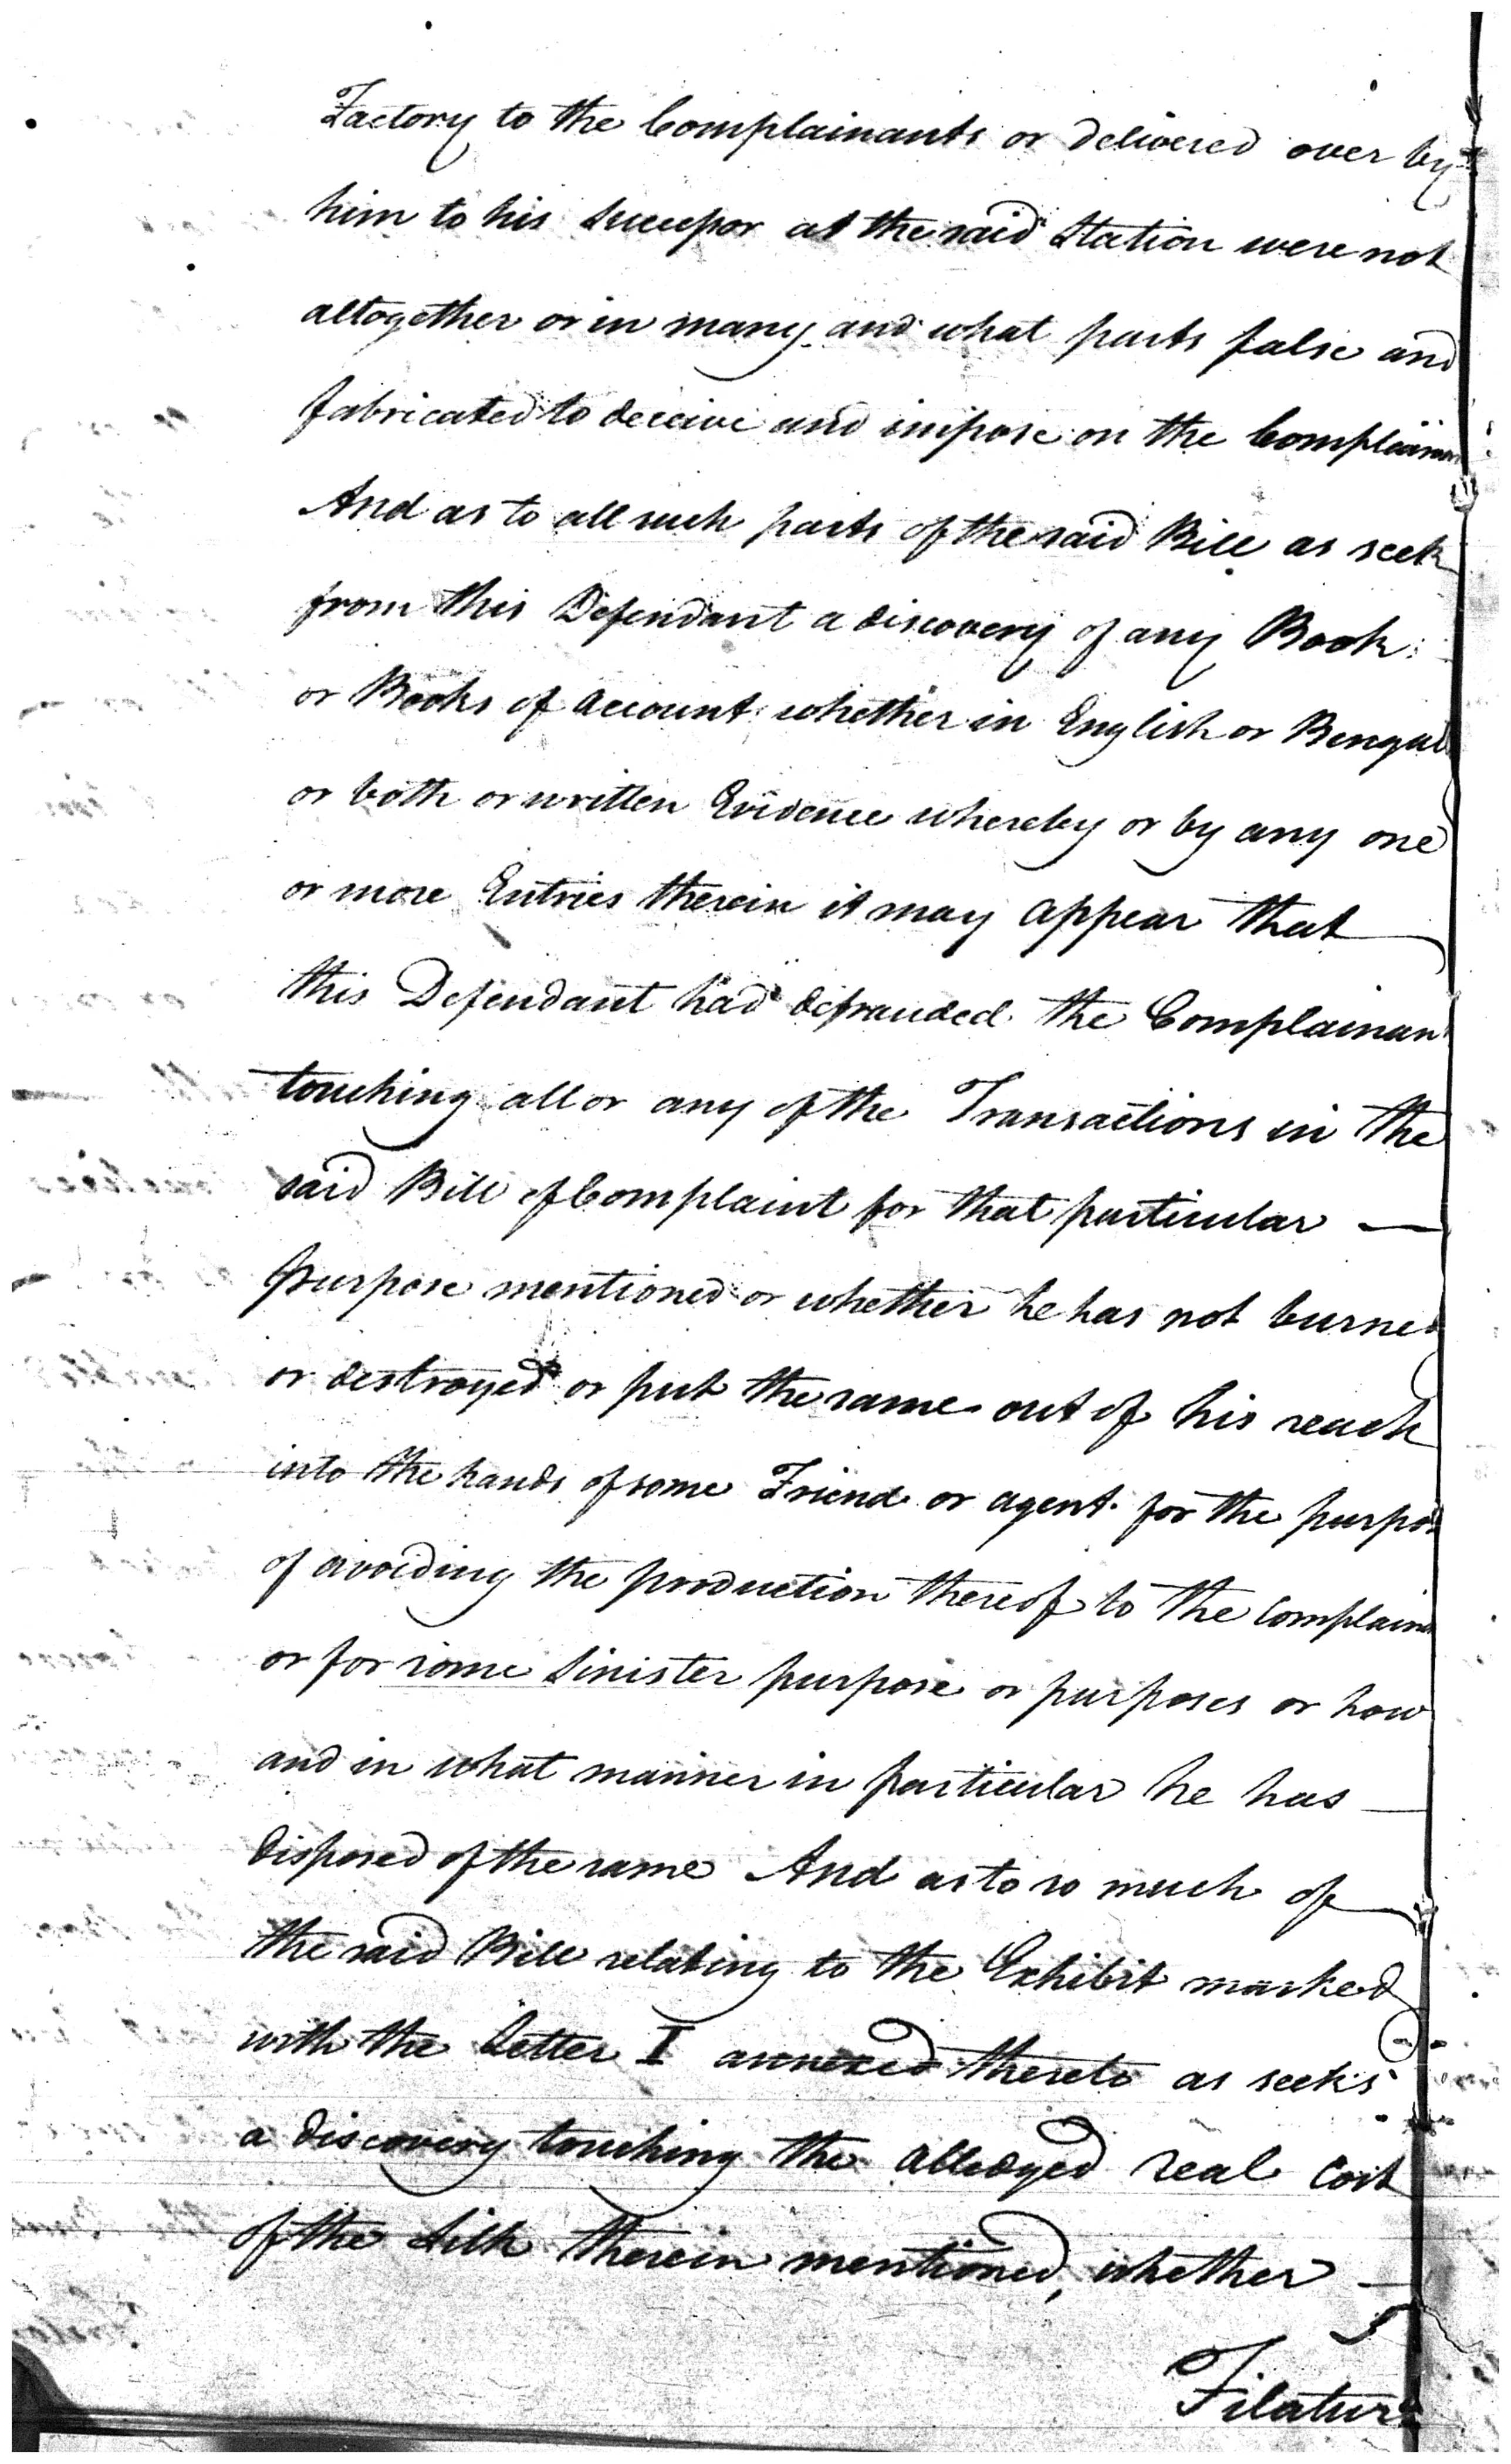 Factory to the Complainants or delivered over by
him to his Successor at the said Station were not
altogether or in many and what parts false and
fabricated to deceive and impose on the Complainan
And as to all such parts of the said Bill as seek
from this Defendant a discovery of any Book
or Books of Account whether in English or Bengal
or both or written Evidence whereby or by any one
or more Entries therein it may appear that
this Defendant had defrauded the Complainan
touching all or any of the Transactions in the
said Bill of Complaint for that particular —
purpose mentioned or whether he has not burned
or destroyed or put the same out of his reach
into the hands of some Friend or agent for the purpos
of avoiding the production thereof to the Complain
or for some Sinister purpose or purposes or how
and in what manner in particular he has —
disposed of the same And as to so much of
the said Bill relating to the Exhibit marked
with the Letter I annexed thereto as seeks
a discovery touching the alledged real Cost
of the Silk therein mentioned, whether —
Filature